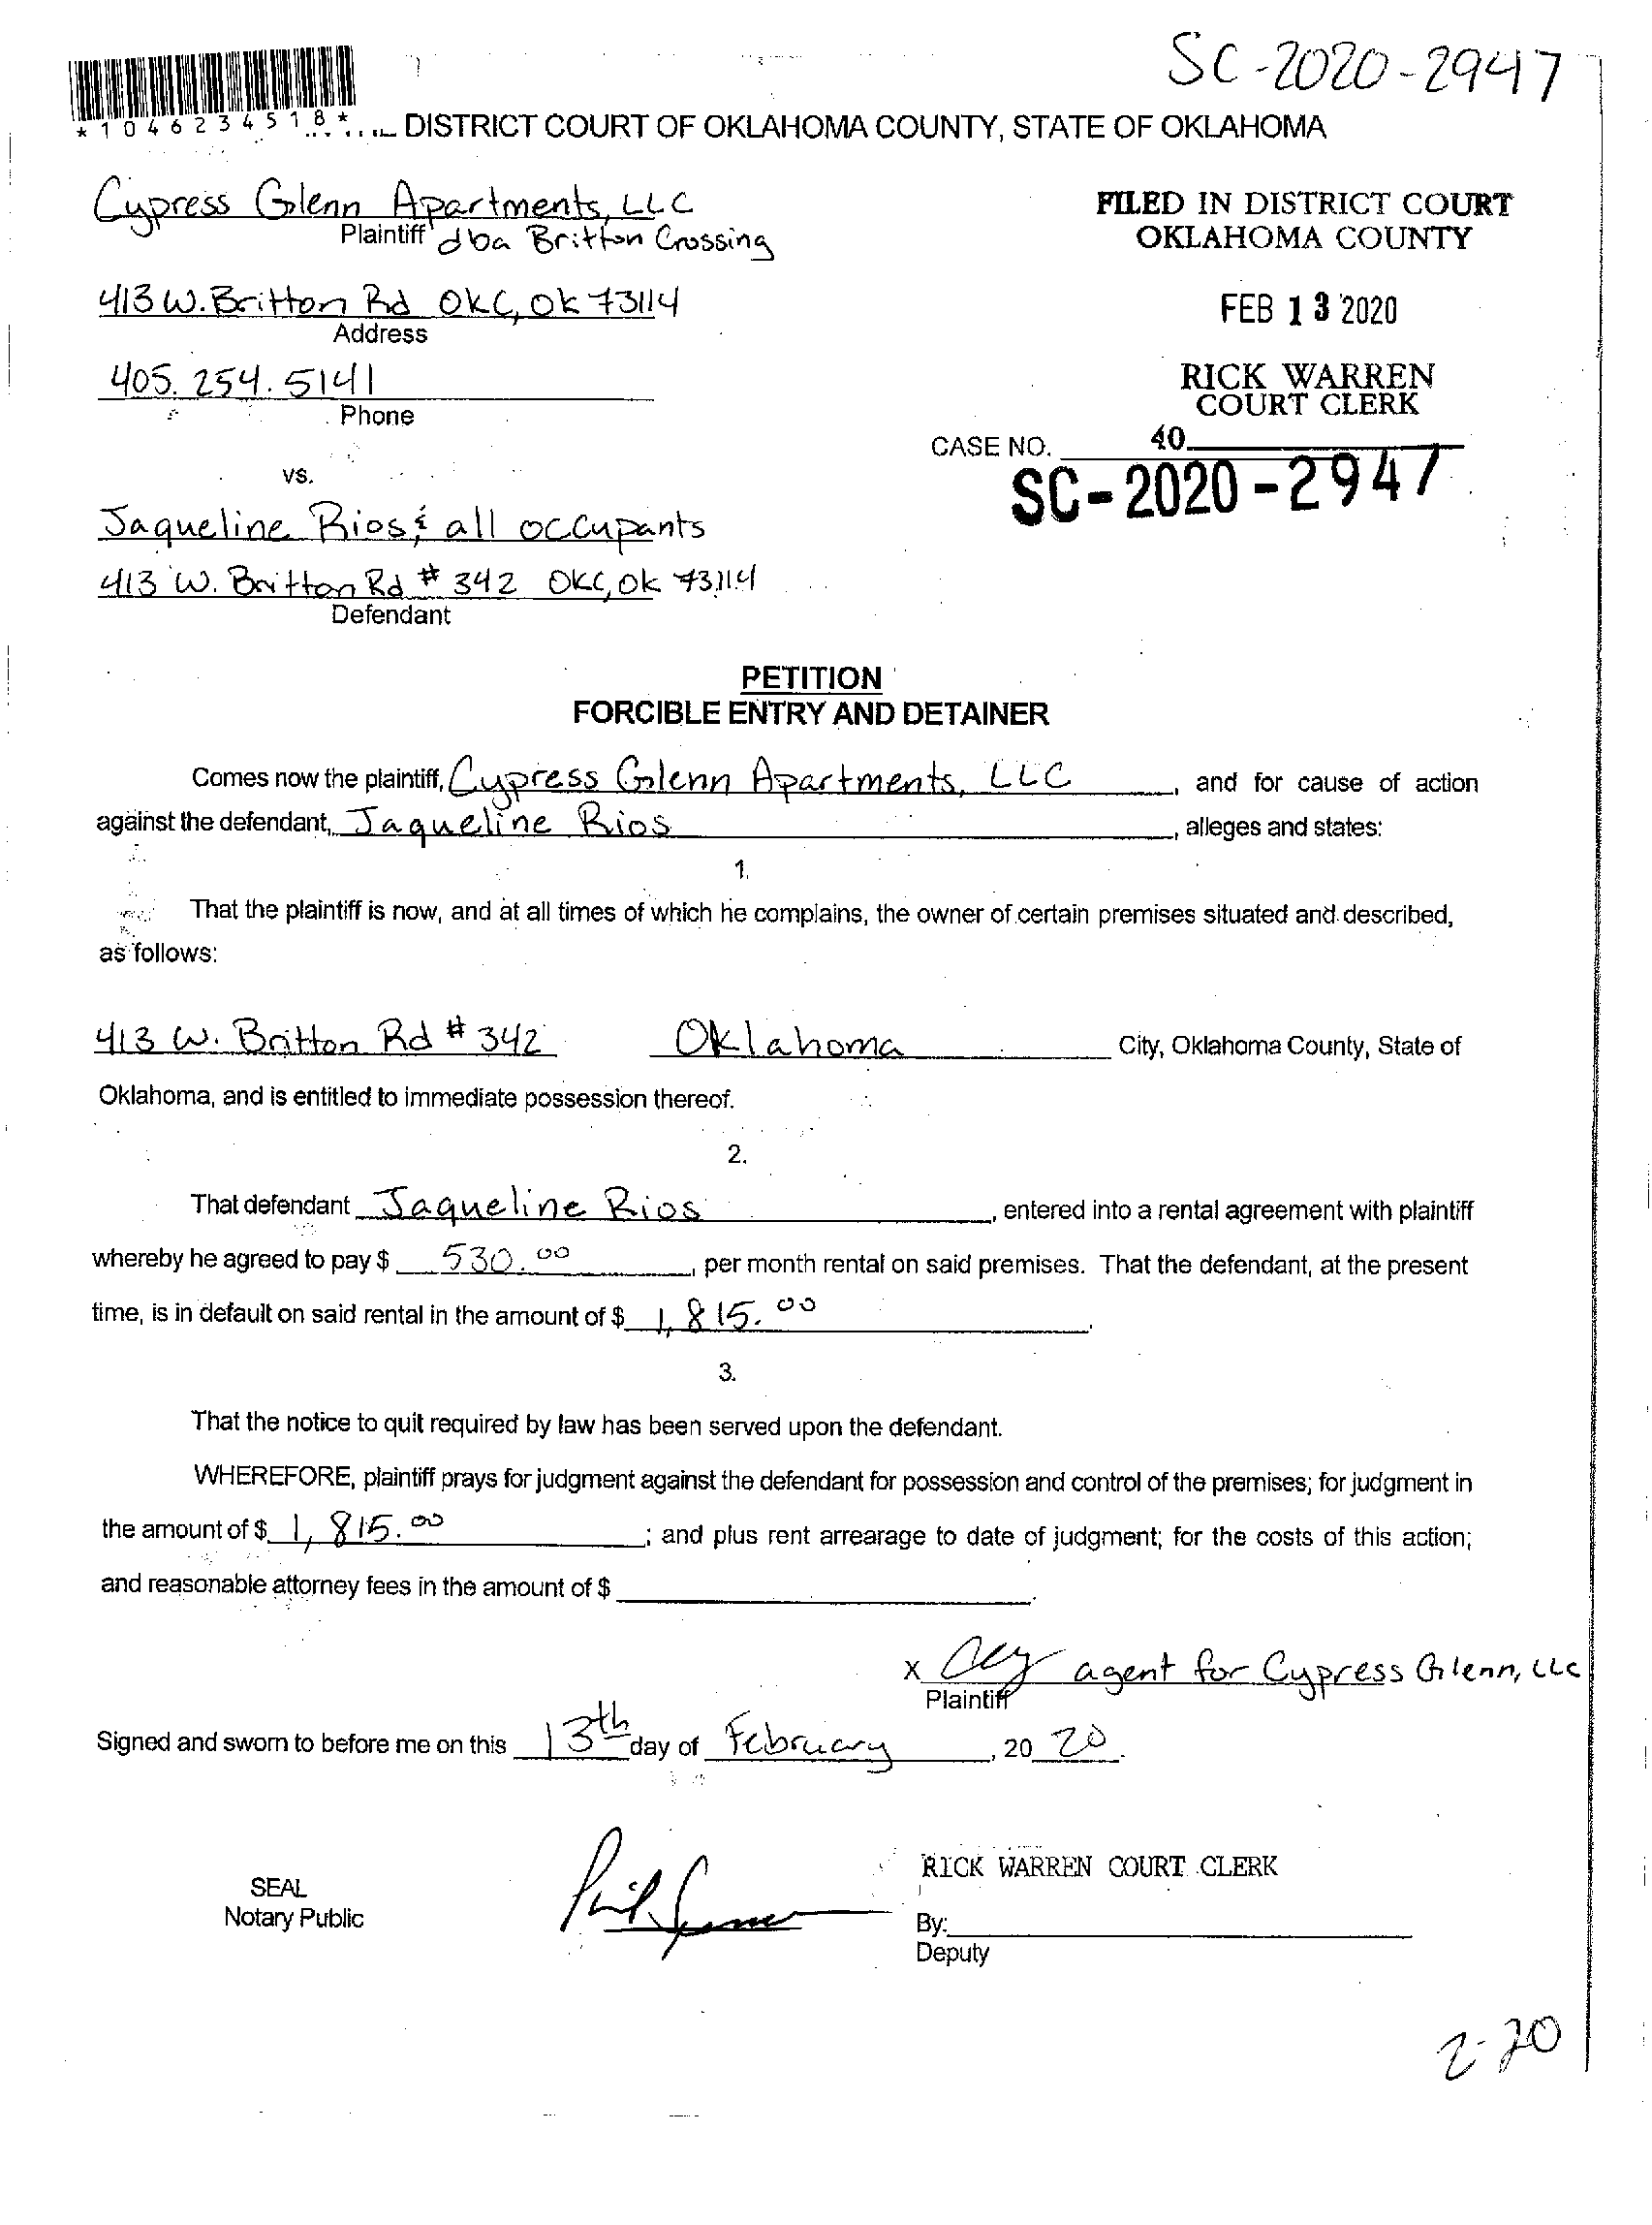 SC-2020-2947
*1046234518*
DISTRICT COURT OF OKLAHOMA COUNTY, STATE OF OKLAHOMA
Cypress Glenn Apartments, LLC
Plaintiff dba Britton Crossing
FILED IN DISTRICT COURT
OKLAHOMA COUNTY
413 W. Britton Rd OKC, OK 73114
Address
FEB 13 2020
405. 254. 5141
Phone
RICK WARREN
COURT CLERK
40
CASE NO.
SC-2020-2947
vs.
Jaqueline Rios & all occupants
413 W. Britton Rd # 342 OKC, OK 73114
Defendant
PETITION
FORCIBLE ENTRY AND DETAINER
Comes now the plaintiff, Cypress Glenn Apartments, LLC, and for cause of action
against the defendant, Jaqueline Rios, alleges and states:
1.
That the plaintiff is now, and at all times of which he complains, the owner of certain premises situated and described,
as follows:
413 W. Britton Rd # 342 Oklahoma City, Oklahoma County, State of
Oklahoma, and is entitled to immediate possession thereof.
2.
That defendant Jaqueline Rios, entered into a rental agreement with plaintiff
whereby he agreed to pay $ 530.00, per month rental on said premises. That the defendant, at the present
time, is in default on said rental in the amount of $ 1,815.00.
3.
That the notice to quit required by law has been served upon the defendant.
WHEREFORE, plaintiff prays for judgment against the defendant for possession and control of the premises; for judgment in
the amount of $ 1,815.00; and plus rent arrearage to date of judgment; for the costs of this action;
and reasonable attorney fees in the amount of $
x agent for Cypress Glenn, LLC
Plaintiff
Signed and sworn to before me on this 13th day of February, 20 20.
RICK WARREN COURT CLERK
SEAL
Notary Public
By:
Deputy
2-20